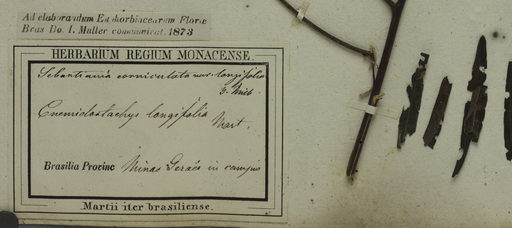 Ad elaborandum Euphorbiacearum Florae
Bras Do. I. Muller communicat. 1873
HERBARIUM REGIUM MONACENSE.
Sebastiania corniculata var. longifolia
Cnemidostachys longifolia
Mart.
Brasilia Provinc Minas Geraës in campis
Martii iter brasiliense.